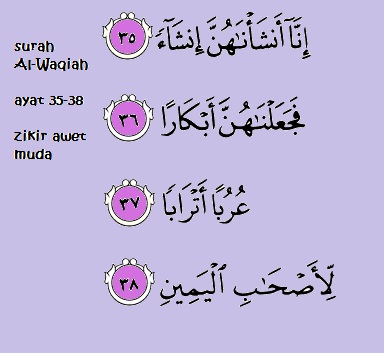 surah
Al-Waqiah
ayat 35-38
zikir awet
muda
إِنَّآ أَنشَأْنَٰهُنَّ إِنشَآءً ٣٥
فَجَعَلْنَٰهُنَّ أَبْكَارًا ٣٦
عُرُبًا أَتْرَابًا ٣٧
لِّأَصْحَٰبِ ٱلْيَمِينِ ٣٨